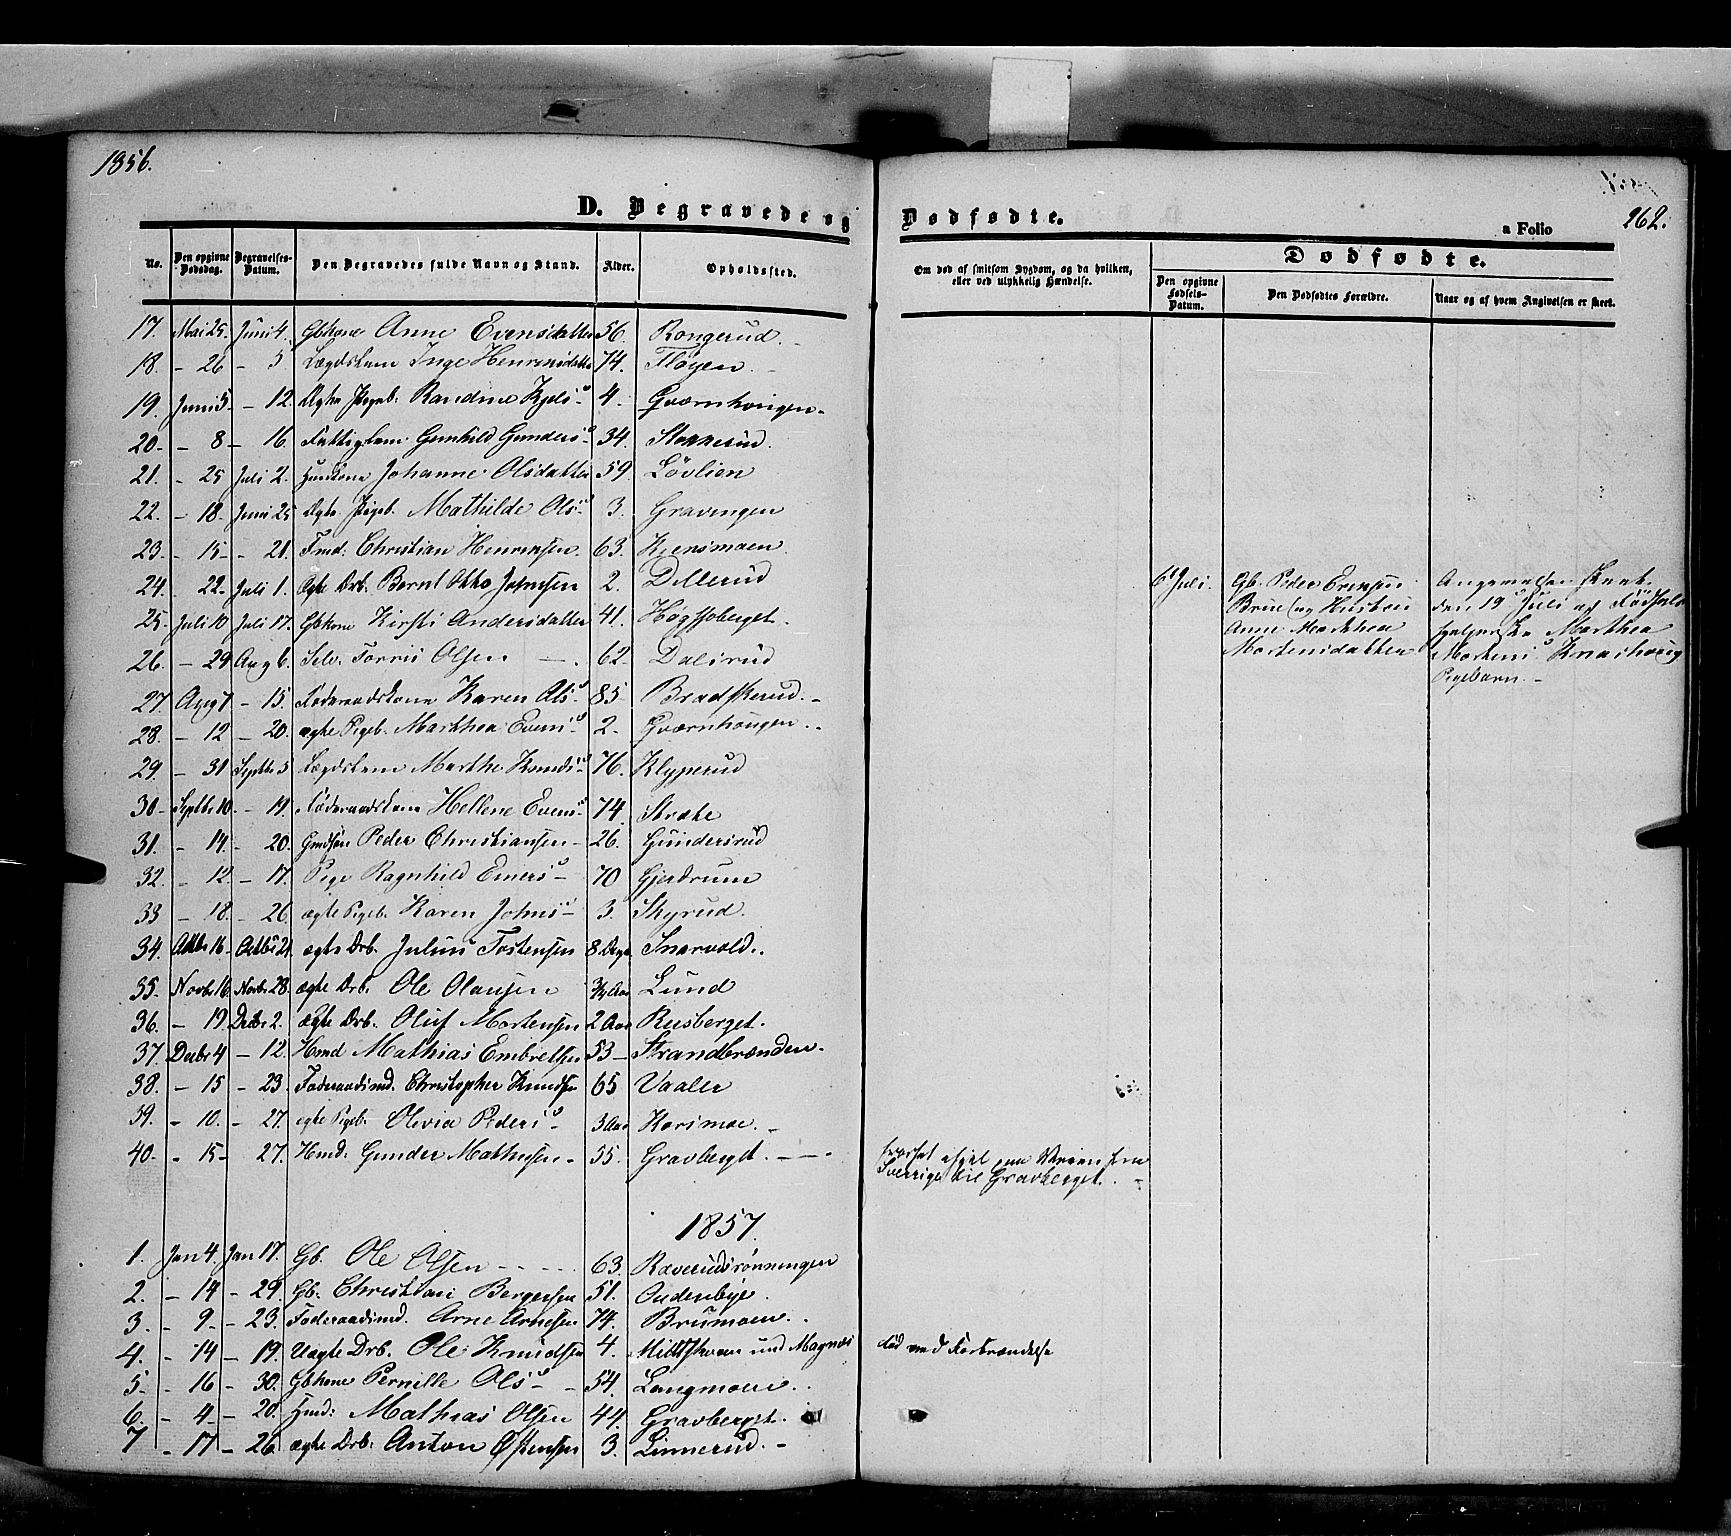 1856.
262.
D. Begravede og Dødfødte.
a Folio
No. Den opgivne Dødsdag. Begravelses-Datum. Den Begravedes fulde Navn og Stand. Alder. Opholdssted.
Om død af smitsom Sygdom, og da hvilken, eller ved ulykkelig Hændelse.
Dødfødte.
Den opgivne Fødsels-Datum. Den Dødfødtes Forældre. Naar og af hvem Angivelsen er skeet.
17. Mai 25. Juni 4. Gbkone Anne Evensdatter 56. Rongerud.
18. - 26 - 5 Lægdslem Inge Henriksdatter 74. Fløyen
19. Juni 5. - 12. Ægte Pigeb. Randine 4. Qværnhougen
20. - 8 - 16. Fattiglem Gunhild Gunders- 34. Stokkerud.
21. - 25 Juli 2. Huuskone Johanne Olsdatter 59. Løvlien
22. - 18. Juni 25 Ægte Pigeb. Mathilde Ols- 3. Gravingen
23. - 15 - 21. Christian Henriksen. 63. Kiensmoen.
24. - 22. Juli 1. Ægte Drb. Bernt Otto Johnsen 2. Dellerud
25. Juli 10 Juli 17. Gbkone Kirsti Andersdatter 41. Hogsjoberget.
26. - 29 Aug 6. Selv. Torris Olsen 62. Dalsrud
27 Aug 7 - 15. Føderaadskone Karen Ols- 85. Bradskerud.
28. - 12 - 20. ægte Pigeb. Marthea Evens- 2. Qværnhougen
29. - 31 Septbr 5 Lægdslem Marthe Knuds- 76. Klyperud
30. Septbr 10. - 19. Føderaadskone Hellene Evens- 74. Stræte
31. - 14. - 20. Gmdsøn Peder Christiansen 26. Gundersrud
32. - 12. - 17. Pige Ragnhild Einers- 70 Gjerdrum
33 - 18. - 26 ægte Pigeb. Karen Johns- 3. Skyrud.
34. Oktbr 16. Octbr 21. ægte Drb. Julius Tostensen 8 Dage Snarvold.
35. Novbr 16. Novbr 28. ægte Drb. Ole Olausen 3/4 Aar Lund
36. - 19. Decbr 2. ægte Drb. Oluf Mortensen 2 Aar Rusberget.
37. Decbr 4 - 12. Hmd Mathias Embretsen 53 - Strandbrænden.
38. - 15 - 23. Føderaadsmd. Christopher Knudsen 65 Vaaler
39. - 10. - 27. ægte Pigeb. Olevia Peders- 3 Aar Karimoe.
40. - 15 - 27. Hmd. Gunder Mathisen 55. Gravberget.
Sverrige til Gravberget.
6 Juli. Gb. Peder Evensen
Brue og Hustrue
Anne Marthea
Mortensdatter
Angivelsen skeet
den 19 Juli af Fødsels-
hjelperske Marthea
Mortens-
Pigebarn.
1857.
1. Jan 4. Jan 17. Gb. Ole Olsen 63. Raverudsrønningen
2. - 14 - 29. Gb. Christian Bergersen 51. Oudenbye.
3. - 9 - 23. Føderaadsmd. Arne Arnesen 74. Brumoen.
4. - 14 - 19. Uægte Drb. Ole Knudsen 4. und Magnæs
død ved Forbrændelse
5. - 16 - 30. Gbkone Pernille Ols- 54. Langmoen.
6. - 4 - 20. Hmd: Mathias Olsen 44. Gravberget.
7 - 17 - 26. ægte Drb. Anton Østensen 3. Linnerud.